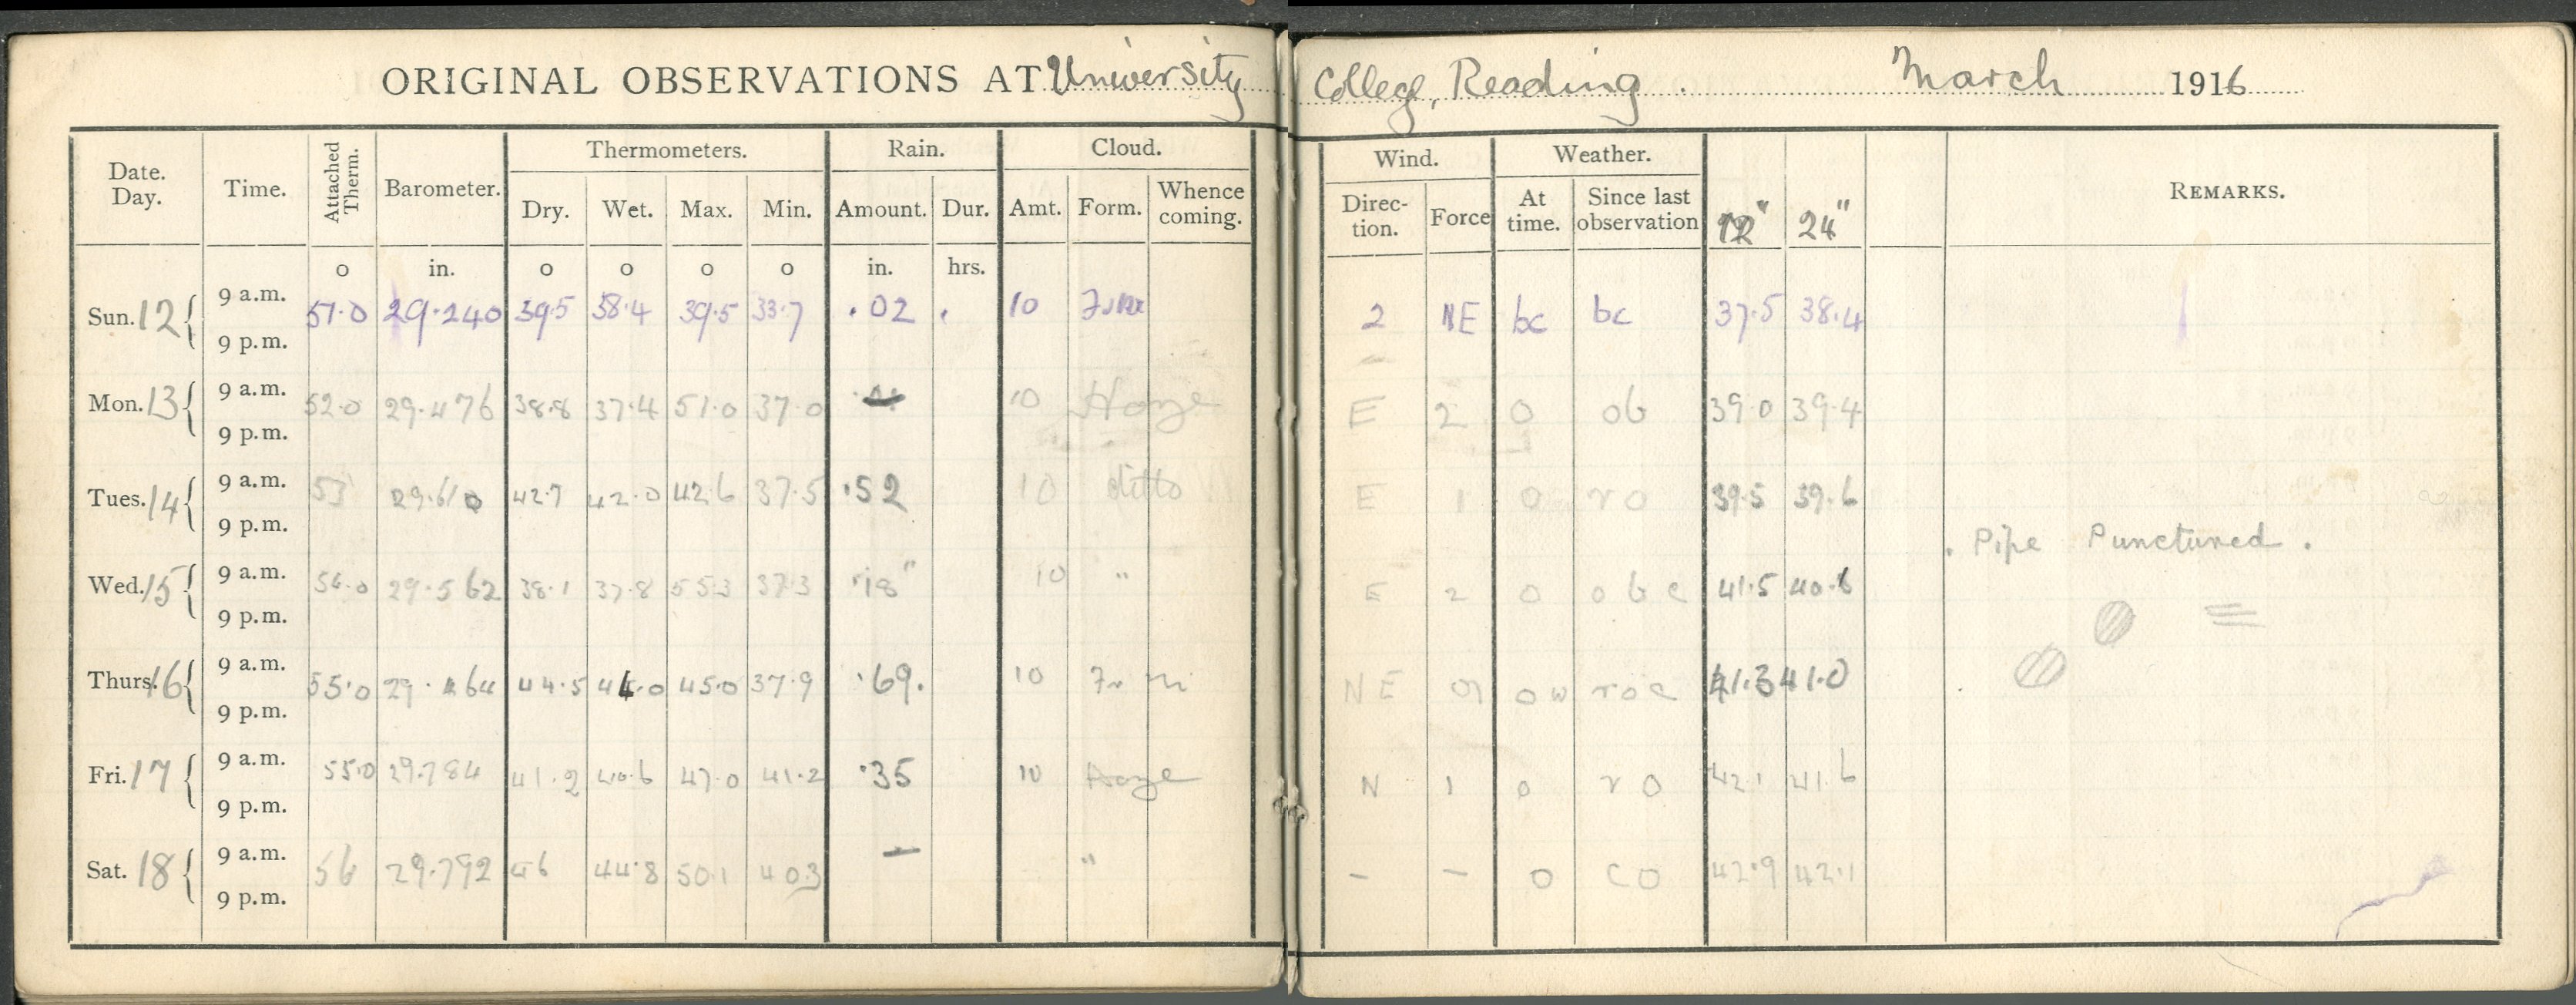 ORIGINAL OBSERVATIONS AT University College, Reading. March 1916
Date. Day. Time. Attached Therm. Barometer. Thermometers. Dry. Wet. Max. Min. Rain. Amount. Dur. Cloud. Amt. Form. Whence coming. Wind. Direction. Force Weather. At time. Since last observation 12" 24" REMARKS.
o in. o o o o in. hrs.
Sun. 12 9 a.m. 51.0 29.240 39.5 38.4 39.5 33.7 .02 . 10 2 NE bc bc 37.5 38.4
9 p.m.
Mon. 13 9 a.m. 52.0 29.476 38.8 37.4 51.0 37.0 10 Haze E 2 o ob 39.0 39.4
9 p.m.
Tues. 14 9 a.m. 53 29.610 42.7 42.0 42.6 37.5 .52 10 ditto E 1 o ro 39.5 39.6
9 p.m.
. Pipe Punctured .
Wed. 15 9 a.m. 54.0 29.562 38.1 37.8 55.3 37.3 .18 " 10 " E 2 o obc 41.5 40.6
9 p.m.
Thurs. 16 9 a.m. 55.0 44.5 44.0 45.0 37.9 .69. 10 NE ow roc 41.3 41.0
9 p.m.
Fri. 17 9 a.m. 55.0 29.784 41.2 40.6 47.0 41.2 .35 10 Haze N 1 o ro 42.1 41.6
9 p.m.
Sat. 18 9 a.m. 56 29.792 46 44.8 50.1 40.3 — " – – o co 42.9 42.1
9 p.m.